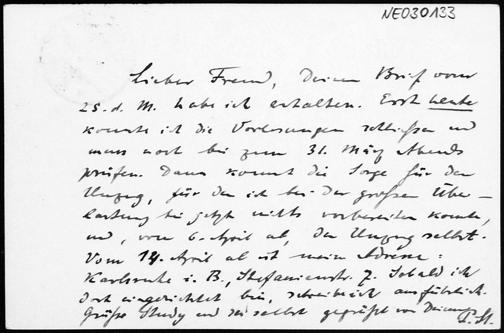 NE030133
Lieber Freund, Deinen Brief vom
25. d. M. habe ich erhalten. Erst heute
konnte ich die Vorlesungen schließen und
muss noch bis zum 31. März Abends
prüfen. Dann kommt die Sorge für den
Umzug, für den ich bei der großen Über-
lastung bis jetzt nichts vorbereiten konnte,
und, vom 6. April ab, der Umzug selbst.
Vom 14. April ab ist meine Adresse:
Karlsruhe i. B., Stefanienstr. 7. Sobald ich
dort eingerichtet bin, schreibe ich ausführlich.
Grüße Study und sei selbst gegrüßt von Deinem